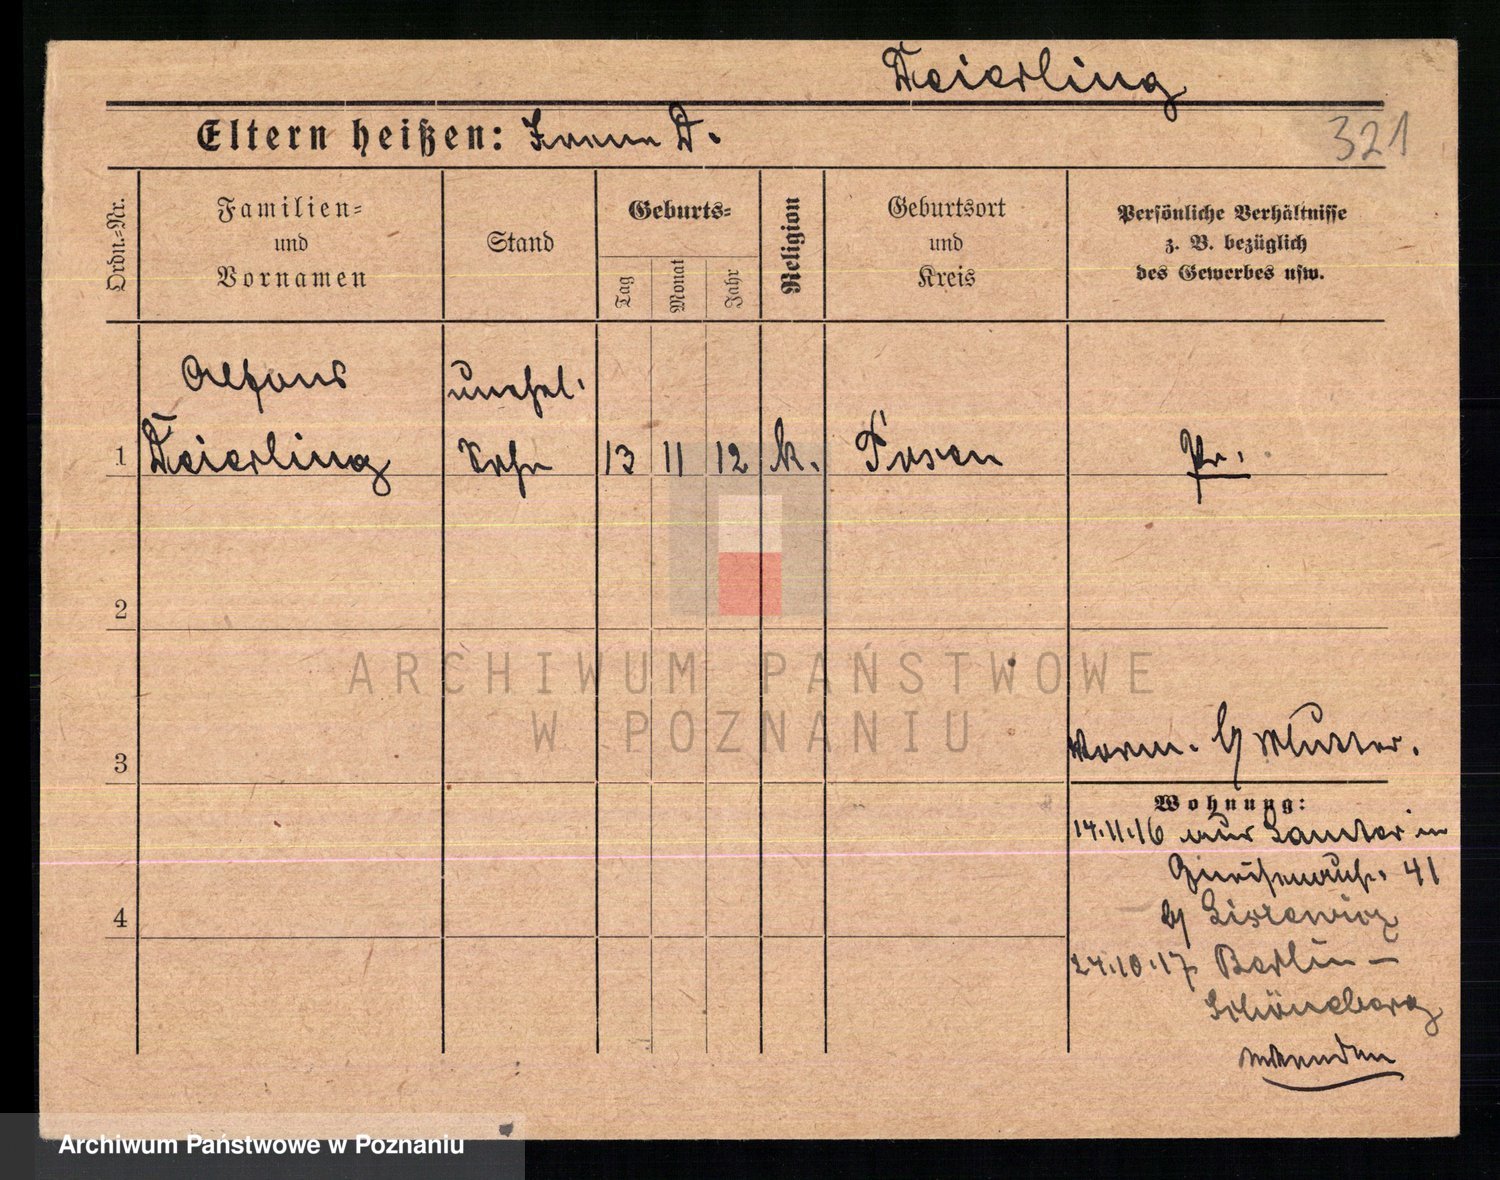 Deierling
Eltern heißen: Irena D.
321
Ordn.-Nr.
Familien-
und
Vornamen
Stand
Geburts-
Tag
Monat
Jahr
Religion
Geburtsort
und
Kreis
Persönliche Verhältnisse
z. B. bezüglich
des Gewerbes usw.
Alfons
unehel.
1 Deierling Sohn 13 11 12 k. Posen Pr.
2
ARCHIWUM PAŃSTWOWE
W POZNANIU
3
Mutter.
Wohnung:
14.11.16 aus
41
4
24.10.17. Berlin-
Schöneberg
wenden
Archiwum Państwowe w Poznaniu